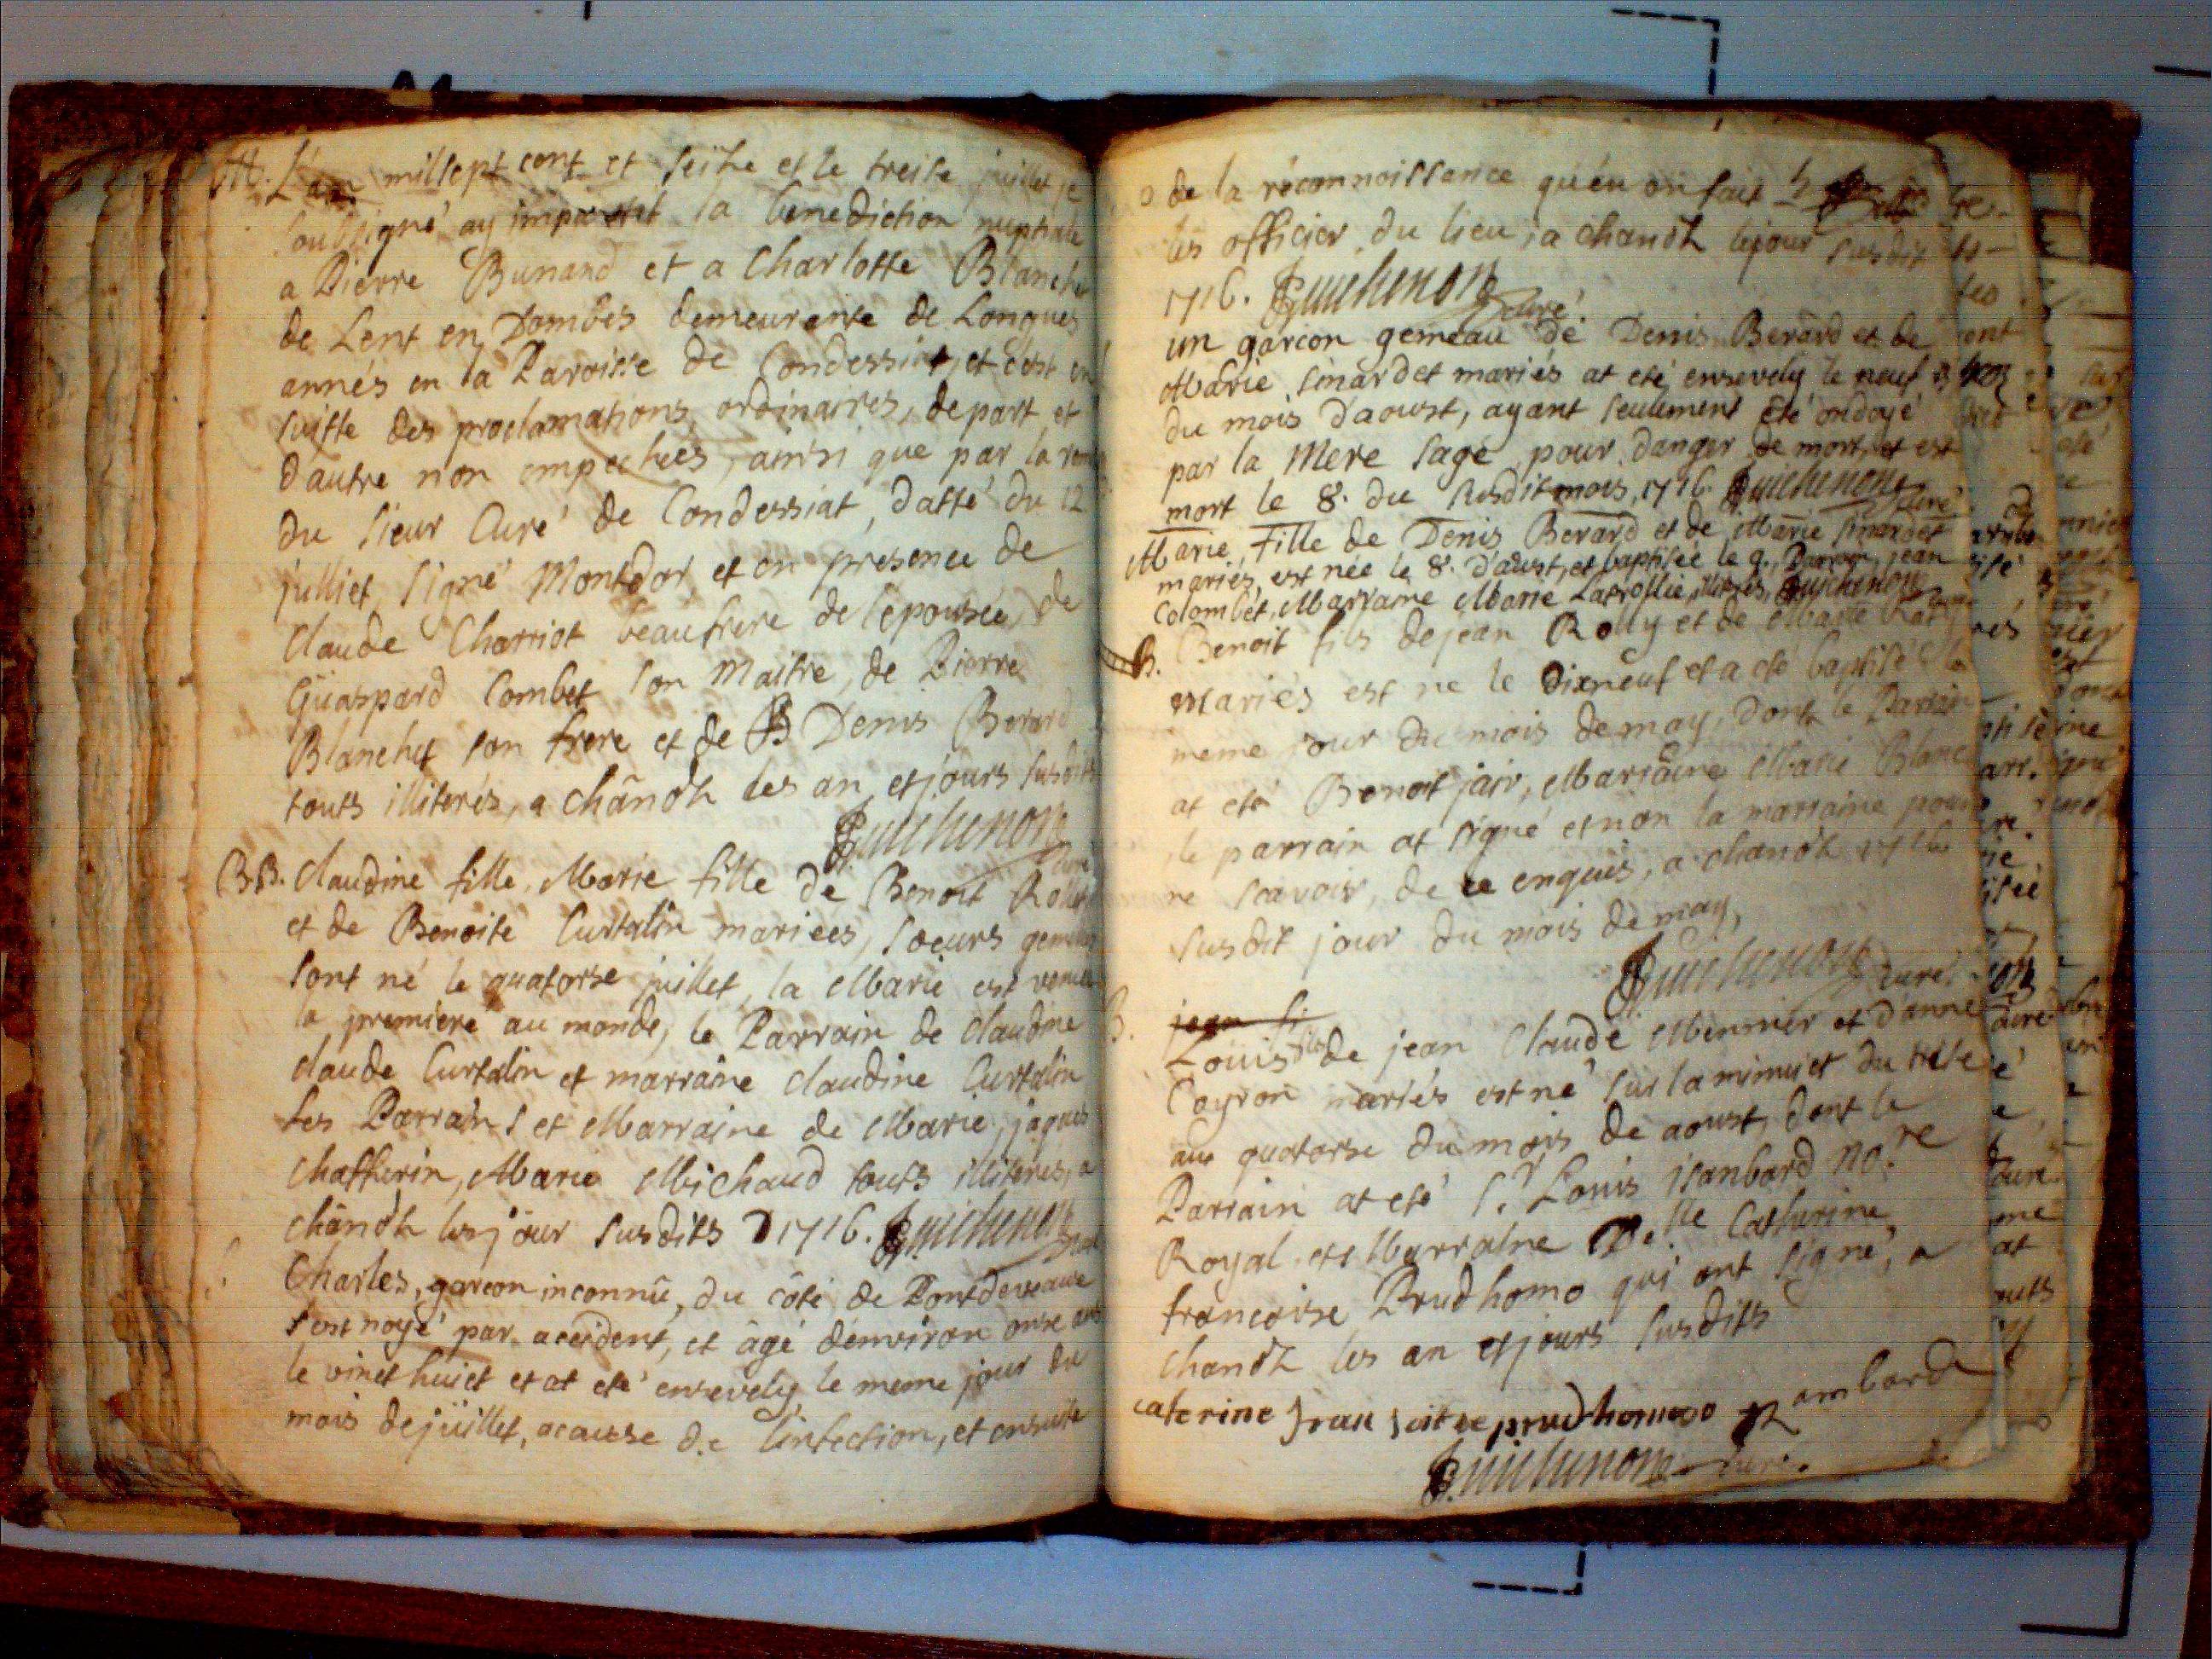 M. L'an millsept cent et seize et le treise juillet je
soussigné ay impartit la benediction nuptiale
a Pierre Bunand et a Charlotte Blanchet
de Lent en Dombes demeurante de Longues
annés en la Paroisse de Condessiat, et c'est en
suitte des proclamations ordinaires, de part et
d'autre non empechées, ainsi que par la
du sieur Curé de Condessiat, datté du 12
julliet, signé Montdor, et en presence de
Claude Charriot beaufrere de lepousée, de
Guaspard Combet son Maitre, de Pierre
Blanchet son frere et de Denis Berard
touts illiterés, a Chânoz les an et jours susdits
Guichenon curé
BB. Claudine fille, Marie fille de Benoit Rolly
et de Benoite Curtalin mariées, soeurs gemelles
sont né le quatorse juillet, la Marie est venue
la premiere au monde, le Parrain de Claudine
Claude Curtalin et marraine Claudine Curtalin
les Parrains et Marraine de Marie, jaques
Chattherin, Marie Michaud touts illiterés, a
Chânoz les jour susdits 1716. Guichenon curé
Charles, garcon inconnû, du côté de Pontdeveaux
s'est noyé par accident, et âgé d'environ onse ans
le vinct huict et at eté ensevely le meme jour du
mois de juillet, acausse de l'infection, et ensuite
de la réconnoissance qu'en on fait
les officier du lieu, a chanoz lejour susdit
1716. Guichenon curé
un garcon gemeau de Denis Berard et de
Marie Sinardet mariés at eté ensevely le neuf
du mois d'aoust, ayant seulement été ondoyé
par la Mere sage pour danger de mort, et est
mort le 8. du susdit mois, 1716. Guichenon curé
Marie, fille de Denis Berard et de Marie Sinardet
mariés, est née le 8. d'aust, et baptisée le 9. Parrain jean
Colombet, Marraine Marie illiterés, Guichenon
B. Benoit fils de jean Rolly et de Marie
Mariés est ne le dixneuf et a eté baptisé le
meme jour du mois de may, dont le Parrain
at eté Benoit jair, Marraine Marie Blanc
le parrain at signé et non la marraine pour
ne scavoir, de ce enquis, a chanoz 1716
susdit jour du mois de may,
Guichenon curé
B. jean fi
Louis fils de jean Claude Meunier et d'anne
Coyron mariés est né sur la minuict du treise
au quatorse du mois de aoust, dont le
Parrain at eté S.r Louis isanbard no.re
Royal et Marraine De.lle Catherine
francoise Prudhomo qui ont signé, a
chanoz les an et jours susdits
caterine fran soit se prudhomo isambard
Guichenon curé.